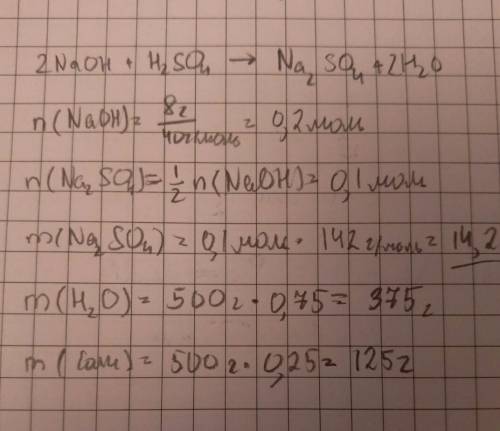 2NaOH + H₂SO₄ → Na₂SO₄ + 2H₂O
n(NaOH) = 8г / 40г/моль = 0,2 мол
n(Na₂SO₄) = 1/2 n(NaOH) = 0,1 мол
m(Na₂SO₄) = 0,1 мол · 142 г/моль = 14,2
m(H₂O) = 500г · 0,75 = 375г
m(соли) = 500г · 0,25 = 125г